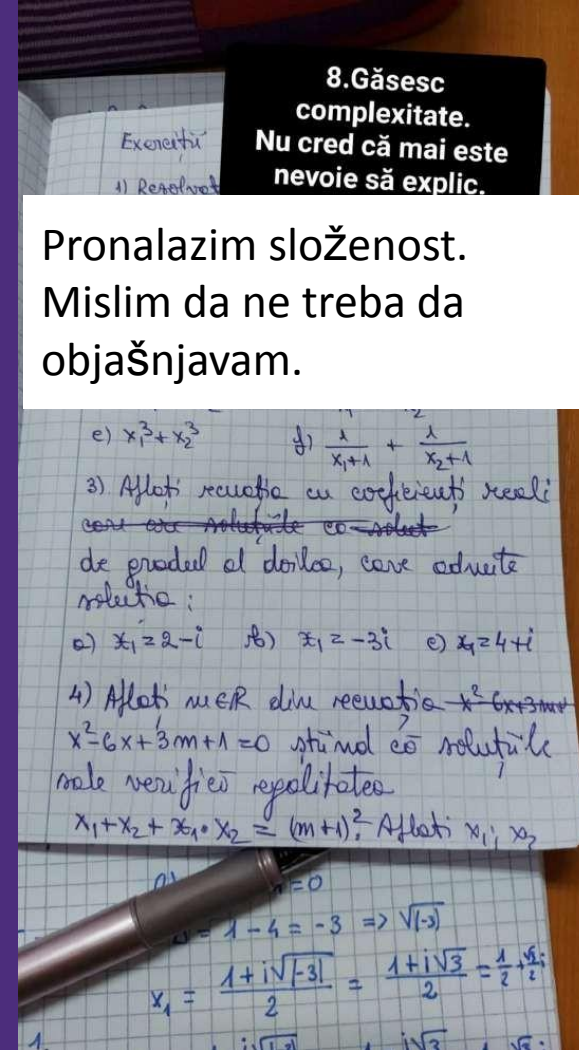 8.Găsesc
complexitate.
Nu cred că mai este
nevoie să explic.
Exerciții
1) Rezolvat
Pronalazim složenost.
Mislim da ne treba da
objašnjavam.
e) x₁³+x₂³ f) 1/(x₁+1) + 1/(x₂+1)
3) Aflați ecuația cu coeficienți reali
care are soluțiile ca solut
de gradul al doilea, care admite
soluția:
a) x₁=2-i b) x₁=-3i c) x₁=4+i
4) Aflați m∈R din ecuația x²-6x+3m+
x²-6x+3m+1=0 știind că soluțiile
sale verifică egalitatea
x₁+x₂+x₁·x₂=(m+1)². Aflați x₁; x₂
=0
= 1-4 = -3 => √(-3)
x₁ = (1+i√|-3|)/2 = (1+i√3)/2 = 1/2+√3/2 i